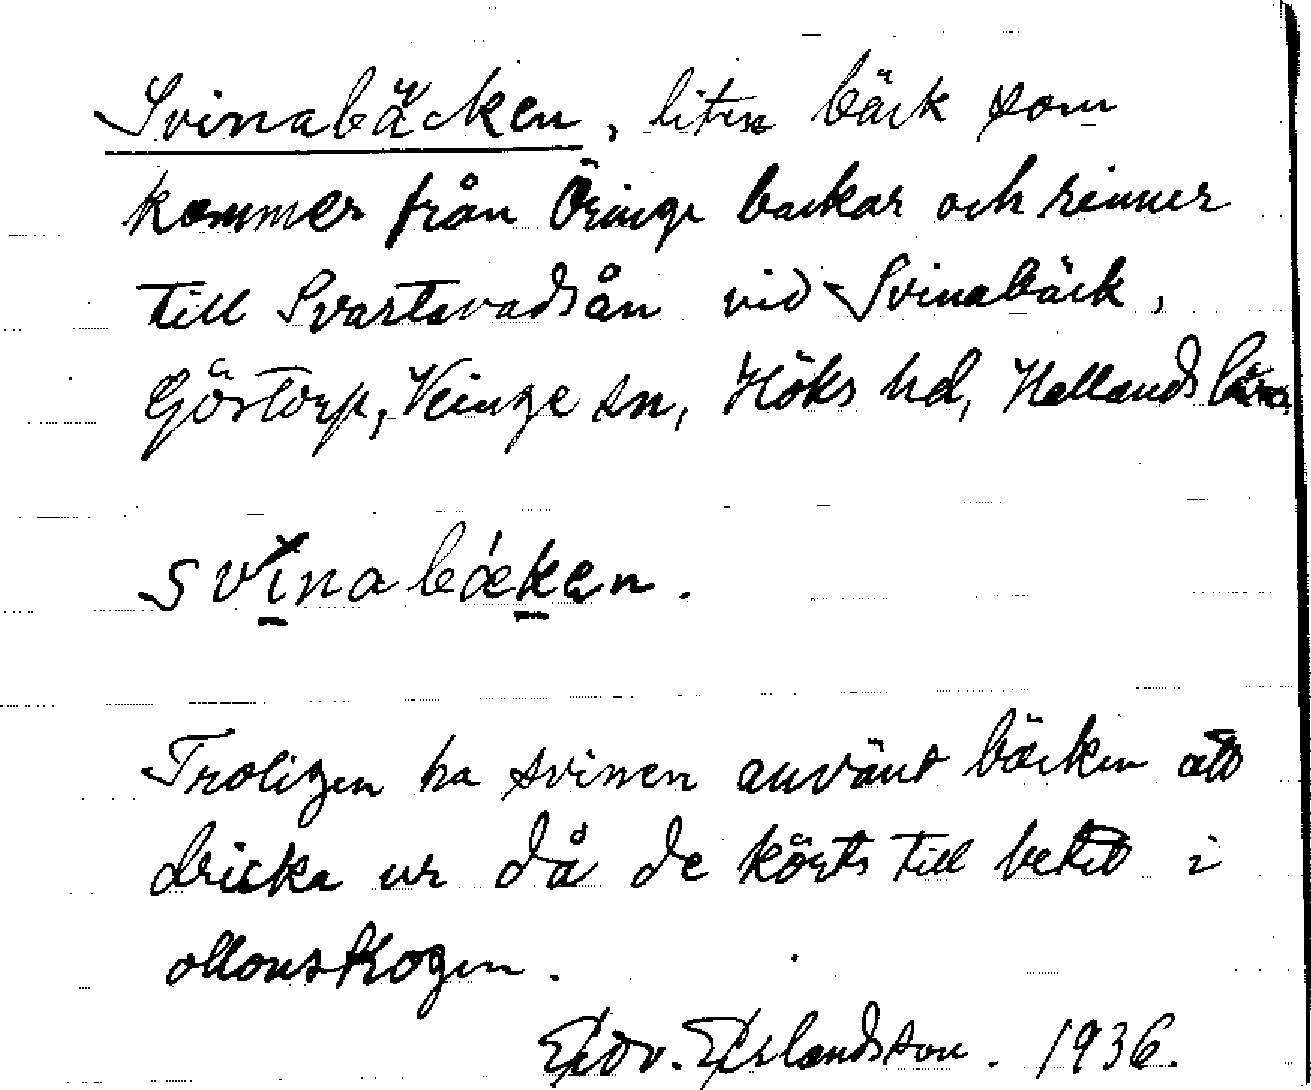 Svinabäcken, liten bäck som
kommer från Öringe backar och rinner
till Svartavadsån vid Svinabäck,
Göstorp, Veinge sn, Höks hd, Hallands län.
svinabǽken.
Troligen ha svinen använt bäcken att
dricka ur då de körts till betet i
ollonskogen.
Edv. Erlandsson. 1936.